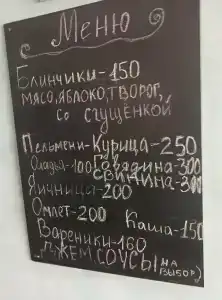 Меню
Блинчики-150
мясо, яблоко, творог,
со сгущёнкой
Пельмени-Курица-250
Оладьи-100 Говядина-300
свинина-300
Яичница-200
Омлет-200
Каша-150
Вареники-160
Джем, соусы (на
выбор)